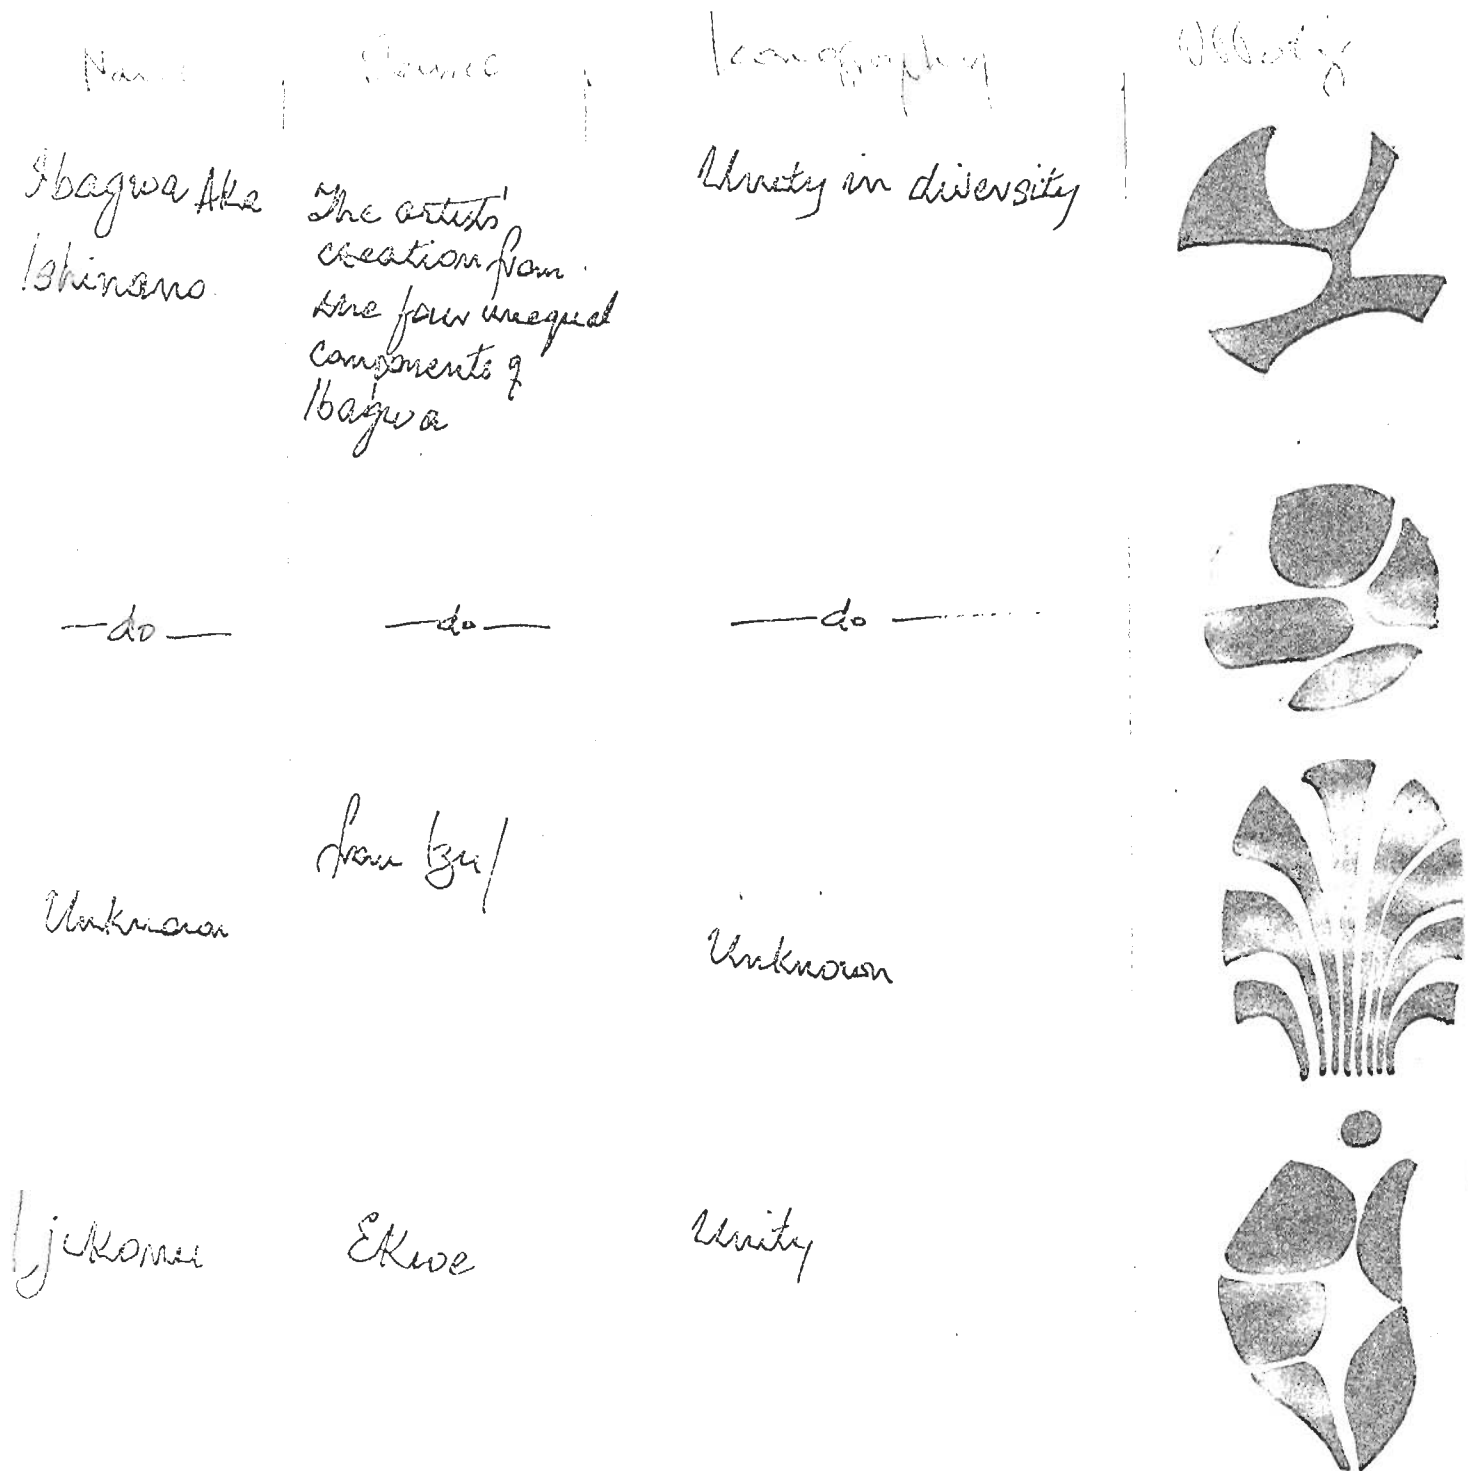 Name Source Iconography
Ibagwa Aka
Ishinano
The artists'
creation from
the four unequal
components of
Ibagwa
Unity in diversity
—do— —do— —do—
Unknown
from
Unknown
Ijikomu Ekwe Unity